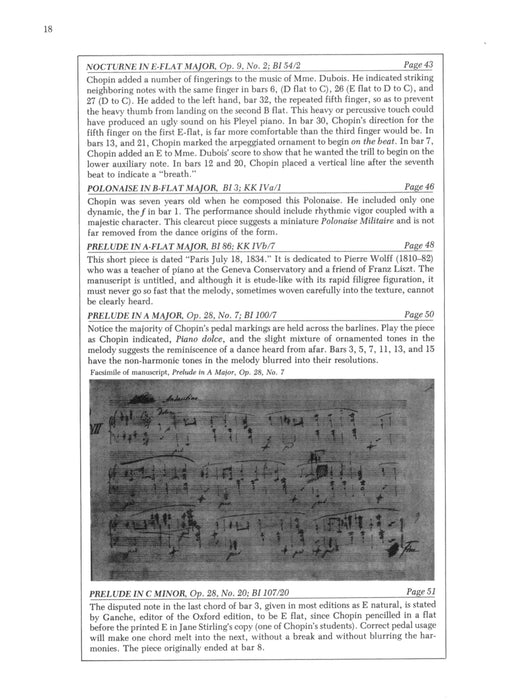 18
NOCTURNE IN E-FLAT MAJOR, Op. 9, No. 2; BI 54/2 Page 43
Chopin added a number of fingerings to the music of Mme. Dubois. He indicated striking
neighboring notes with the same finger in bars 6, (D flat to C), 26 (E flat to D to C), and
27 (D to C). He added to the left hand, bar 32, the repeated fifth finger, so as to prevent
the heavy thumb from landing on the second B flat. This heavy or percussive touch could
have produced an ugly sound on his Pleyel piano. In bar 30, Chopin's direction for the
fifth finger on the first E-flat, is far more comfortable than the third finger would be. In
bars 13, and 21, Chopin marked the arpeggiated ornament to begin on the beat. In bar 7,
Chopin added an E to Mme. Dubois' score to show that he wanted the trill to begin on the
lower auxiliary note. In bars 12 and 20, Chopin placed a vertical line after the seventh
beat to indicate a "breath."
POLONAISE IN B-FLAT MAJOR, BI 3; KK IVa/1 Page 46
Chopin was seven years old when he composed this Polonaise. He included only one
dynamic, the f in bar 1. The performance should include rhythmic vigor coupled with a
majestic character. This clearcut piece suggests a miniature Polonaise Militaire and is not
far removed from the dance origins of the form.
PRELUDE IN A-FLAT MAJOR, BI 86; KK IVb/7 Page 48
This short piece is dated "Paris July 18, 1834." It is dedicated to Pierre Wolff (1810–82)
who was a teacher of piano at the Geneva Conservatory and a friend of Franz Liszt. The
manuscript is untitled, and although it is etude-like with its rapid filigree figuration, it
must never go so fast that the melody, sometimes woven carefully into the texture, cannot
be clearly heard.
PRELUDE IN A MAJOR, Op. 28, No. 7; BI 100/7 Page 50
Notice the majority of Chopin's pedal markings are held across the barlines. Play the piece
as Chopin indicated, Piano dolce, and the slight mixture of ornamented tones in the
melody suggests the reminiscence of a dance heard from afar. Bars 3, 5, 7, 11, 13, and 15
have the non-harmonic tones in the melody blurred into their resolutions.
Facsimile of manuscript, Prelude in A Major, Op. 28, No. 7
Andantino
dolce
VII
PRELUDE IN C MINOR, Op. 28, No. 20; BI 107/20 Page 51
The disputed note in the last chord of bar 3, given in most editions as E natural, is stated
by Ganche, editor of the Oxford edition, to be E flat, since Chopin pencilled in a flat
before the printed E in Jane Stirling's copy (one of Chopin's students). Correct pedal usage
will make one chord melt into the next, without a break and without blurring the har-
monies. The piece originally ended at bar 8.